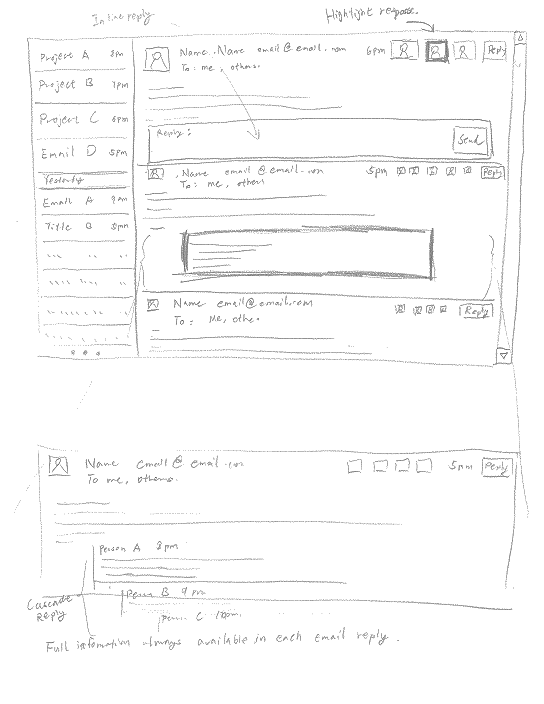 Inline reply
Highlight response.
Project A 8pm
Project B 7pm
Project C 6pm
Email D 5pm
Yesterday
Email A 9am
Title B 5pm
Name, Name email@email.com 6pm Reply
To: me, others.
Reply:
Send
, Name email@email.com 5pm Reply
To: me, others
Name email@email.com Reply
To: Me, othe.
Name email@email.com 5pm Reply
To me, others.
Person A 8pm
Person B 9pm
Person C 10pm
Cascade
Reply
Full information always available in each email reply.